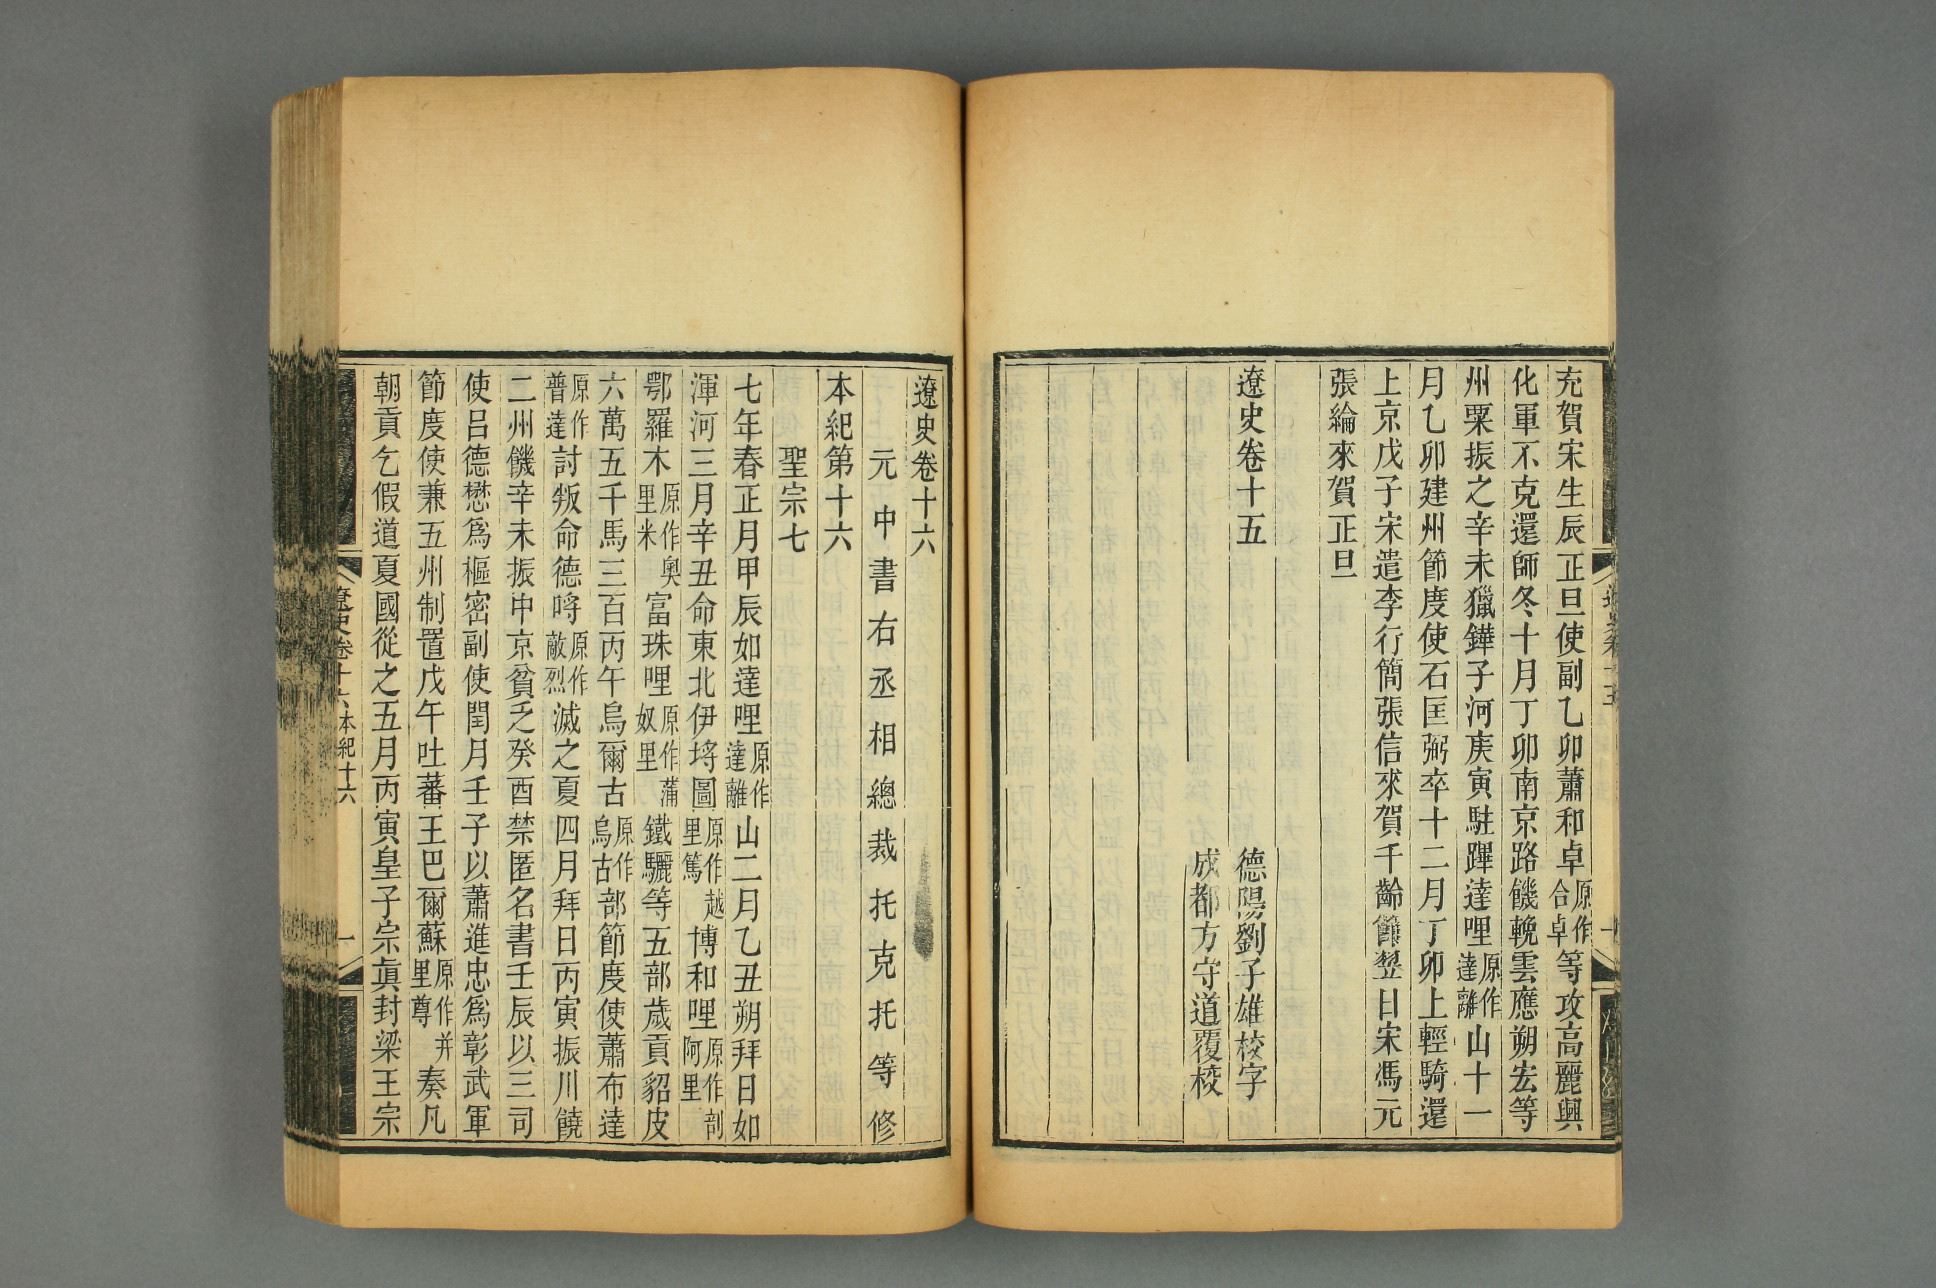 充賀宋生辰正旦使副乙卯蕭和卓原作合卓等攻高麗興
化軍不克還師冬十月丁卯南京路饑輓雲應朔宏等
州粟振之辛未獵鏵子河庚寅駐蹕達哩原作達離山十一
月乙卯建州節度使石匡弼卒十二月丁卯上輕騎還
上京戊子宋遣李行簡張信來賀千齡節翌日宋馮元
張綸來賀正旦
遼史卷十五
德陽劉子雄校字
成都方守道覆校
遼史卷十六
元中書右丞相總裁托克托等修
本紀第十六
聖宗七
七年春正月甲辰如達哩原作達離山二月乙丑朔拜日如
渾河三月辛丑命東北伊埓圖原作越里篤博和哩原作剖阿里
鄂羅木原作奧里米富珠哩原作蒲奴里鐵驪等五部歲貢貂皮
六萬五千馬三百丙午烏爾古原作烏古部節度使蕭布達
原作普達討叛命德哷原作敵烈滅之夏四月拜日丙寅振川饒
二州饑辛未振中京貧乏癸酉禁匿名書壬辰以三司
使呂德懋爲樞密副使閏月壬子以蕭進忠爲彰武軍
節度使兼五州制置戊午吐蕃王巴爾蘇原作并里尊奏凡
朝貢乞假道夏國從之五月丙寅皇子宗眞封梁王宗
遼史卷十六本紀十六
一